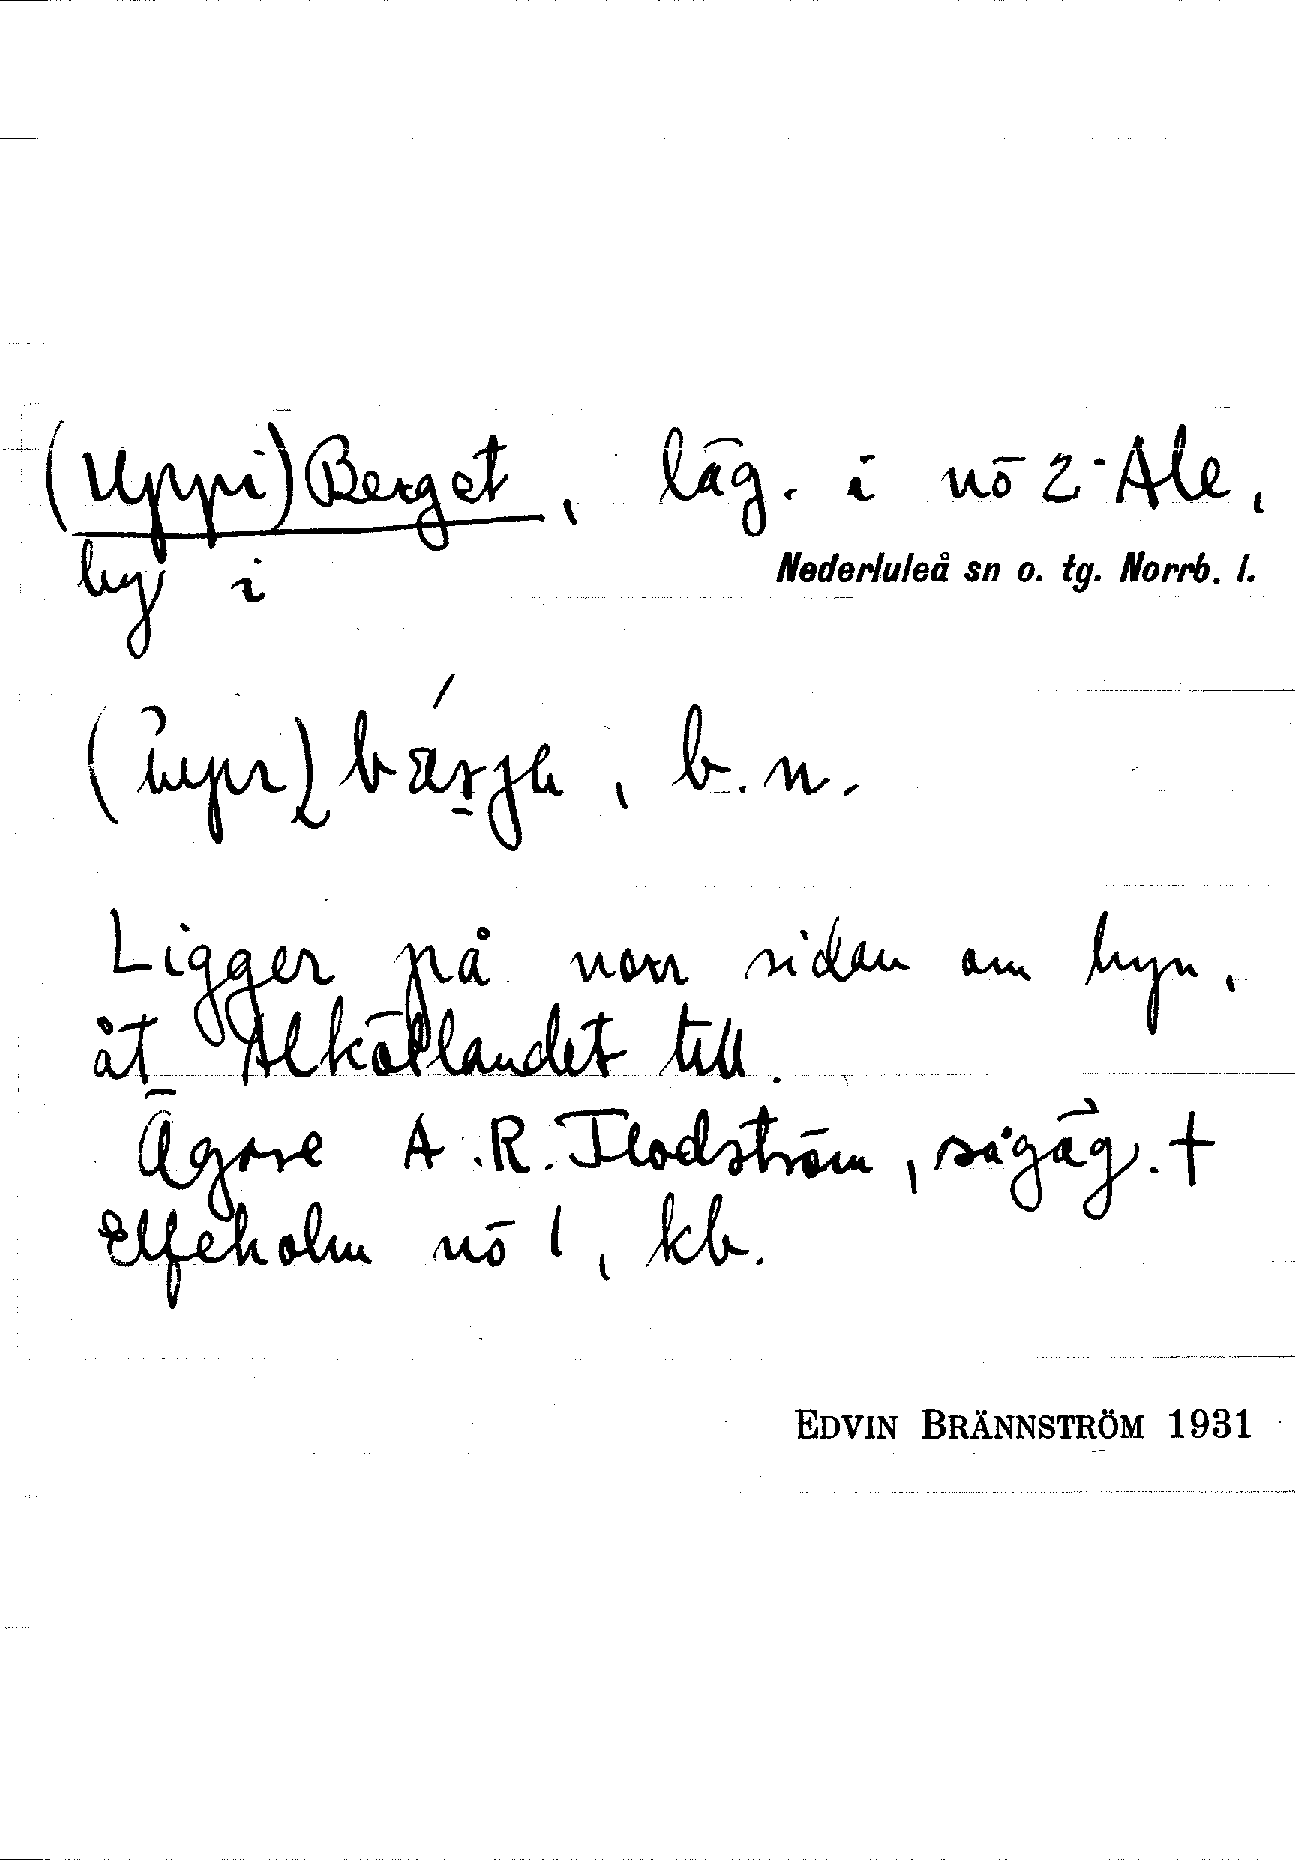 (Uppi)Berget, läg. i nö 2 Ale,
by i Nederluleå sn o. tg. Norrb. l.
b. n.
Ligger på norr sidan om byn,
åt Alkällandet till.
Ägare A. R. Flodström, sågäg. +
Elfeholm nö 1, kb.
EDVIN BRÄNNSTRÖM 1931